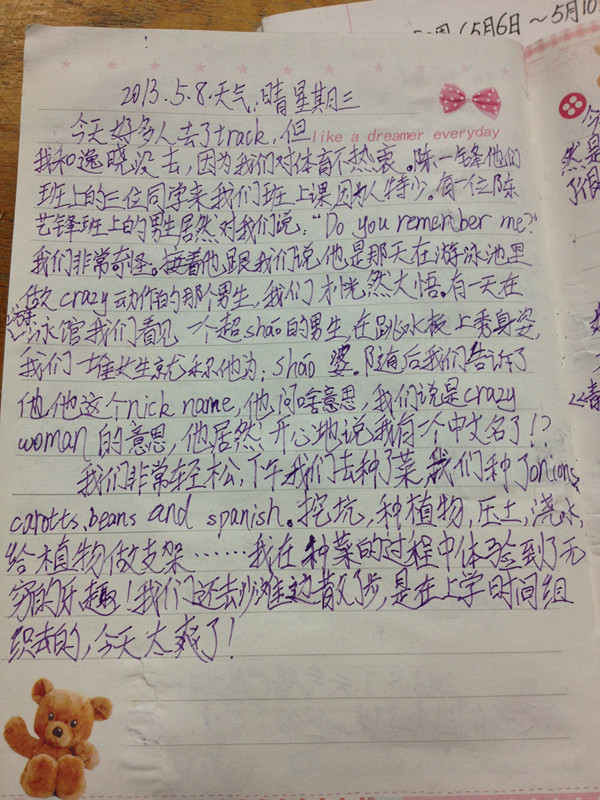 周（5月6日～5月10
2013.5.8.天气:晴星期三
今天好多人去了track,但
like a dreamer everyday
我和逸晓没去,因为我们对体育不热衷。陈一锋他们
班上的三位同学来我们班上课因为人特少。有一位陈
艺锋班上的男生居然对我们说:"Do you remember me?"
我们非常奇怪。接着他跟我们说他是那天在游泳池里
做crazy动作的那个男生,我们才恍然大悟。有一天在
游泳馆我们看见一个超shao的男生,在跳水板上秀身姿,
我们一堆女生就称他为:shao婆。随后我们告诉了
他他这个nick name,他问啥意思,我们说是crazy
woman的意思,他居然开心地说我有一个中文名了!?
我们非常轻松,下午我们去种了菜,我们种了onions,
carotts,beans and spanish。挖坑,种植物,压土,浇水,
给植物做支架……我在种菜的过程中体验到了无
穷的乐趣!我们还去沙滩边散了步,是在上学时间组
织去的,今天太爽了!
今
然是
了很